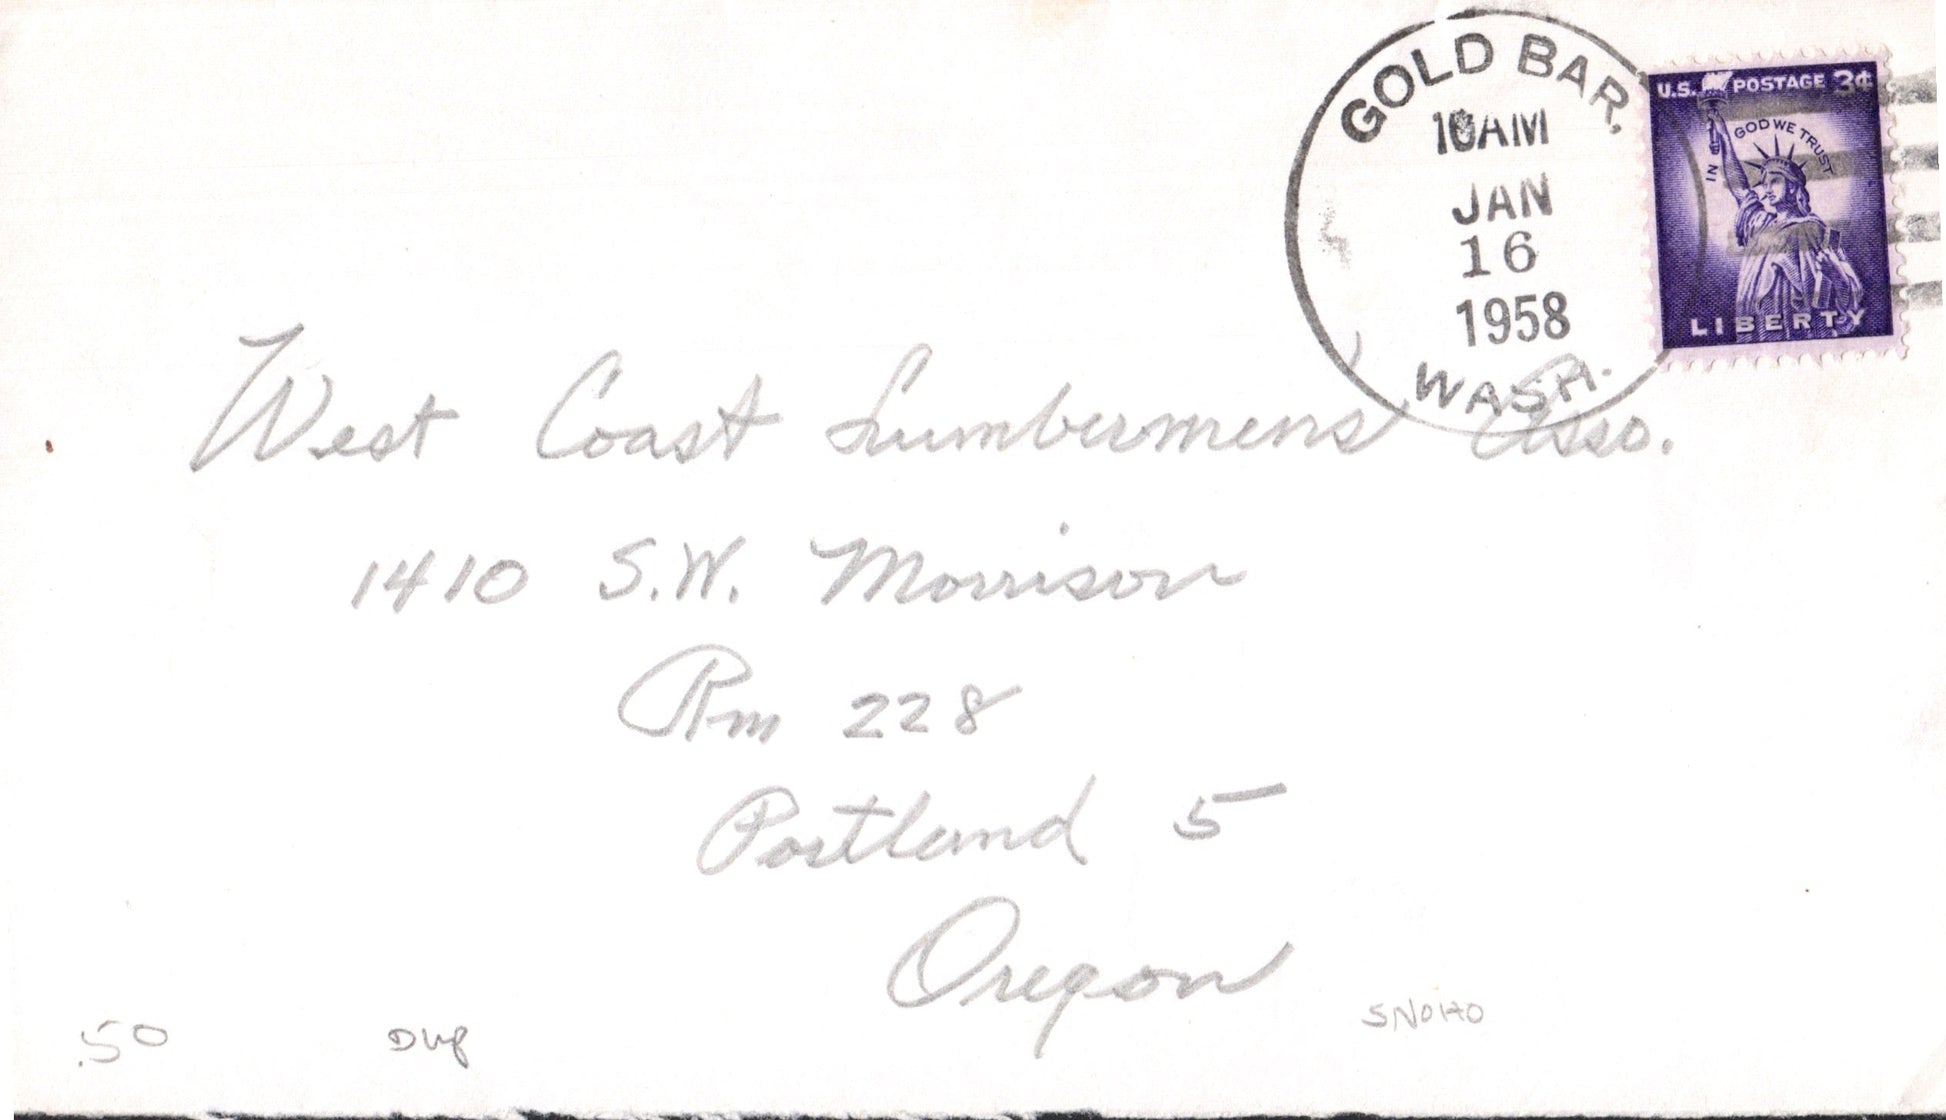 GOLD BAR,
10AM
JAN
16
1958
WASH.
U.S. POSTAGE 3¢
IN GOD WE TRUST
LIBERTY
West Coast Lumbermens Asso.
1410 S.W. Morrison
Rm 228
Portland 5
Oregon
.50
Dup